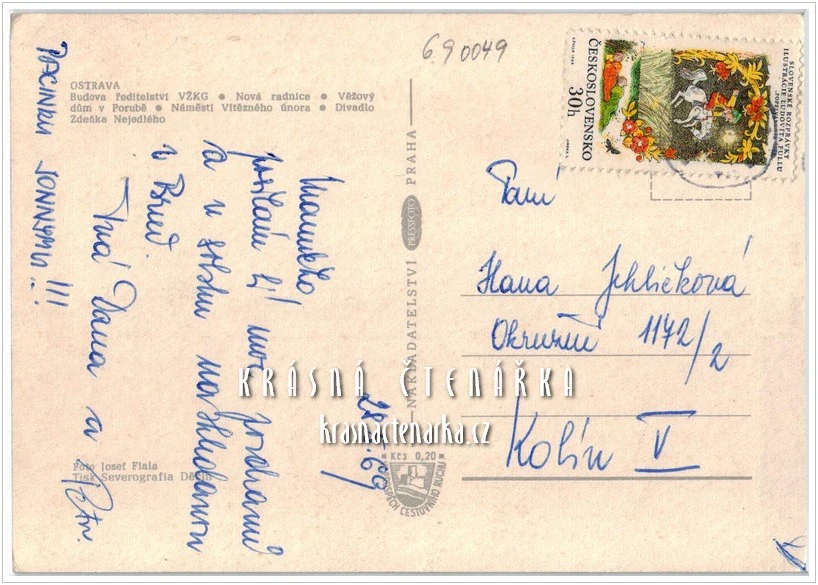 690049
OSTRAVA
Budova ředitelství VŽKG ● Nová radnice ● Věžový
dům v Porubě ● Náměstí Vítězného února ● Divadlo
Zdeňka Nejedlého
Maminko,
posílám Ti moc pozdravů
a v sobotu nashledanou
v Brně.
Tvá Dana a Petr.
PACINKU JONNYMU !!!
28.5.69
NAKLADATELSTVÍ PRESSFOTO PRAHA
Kčs 0,20
VE PROSPĚCH CESTOVNÍHO RUCHU
Foto Josef Fiala
Tisk Severografia Děčín
SLOVENSKÉ ROZPRÁVKY
ILUSTRÁCIE ĽUDOVÍTA FULLU
ČESKOSLOVENSKO
30h
Paní
Hana Jehličková
Okružní 1172/2
Kolín V
KRÁSNÁ ČTENÁŘKA
krasnactenarka.cz